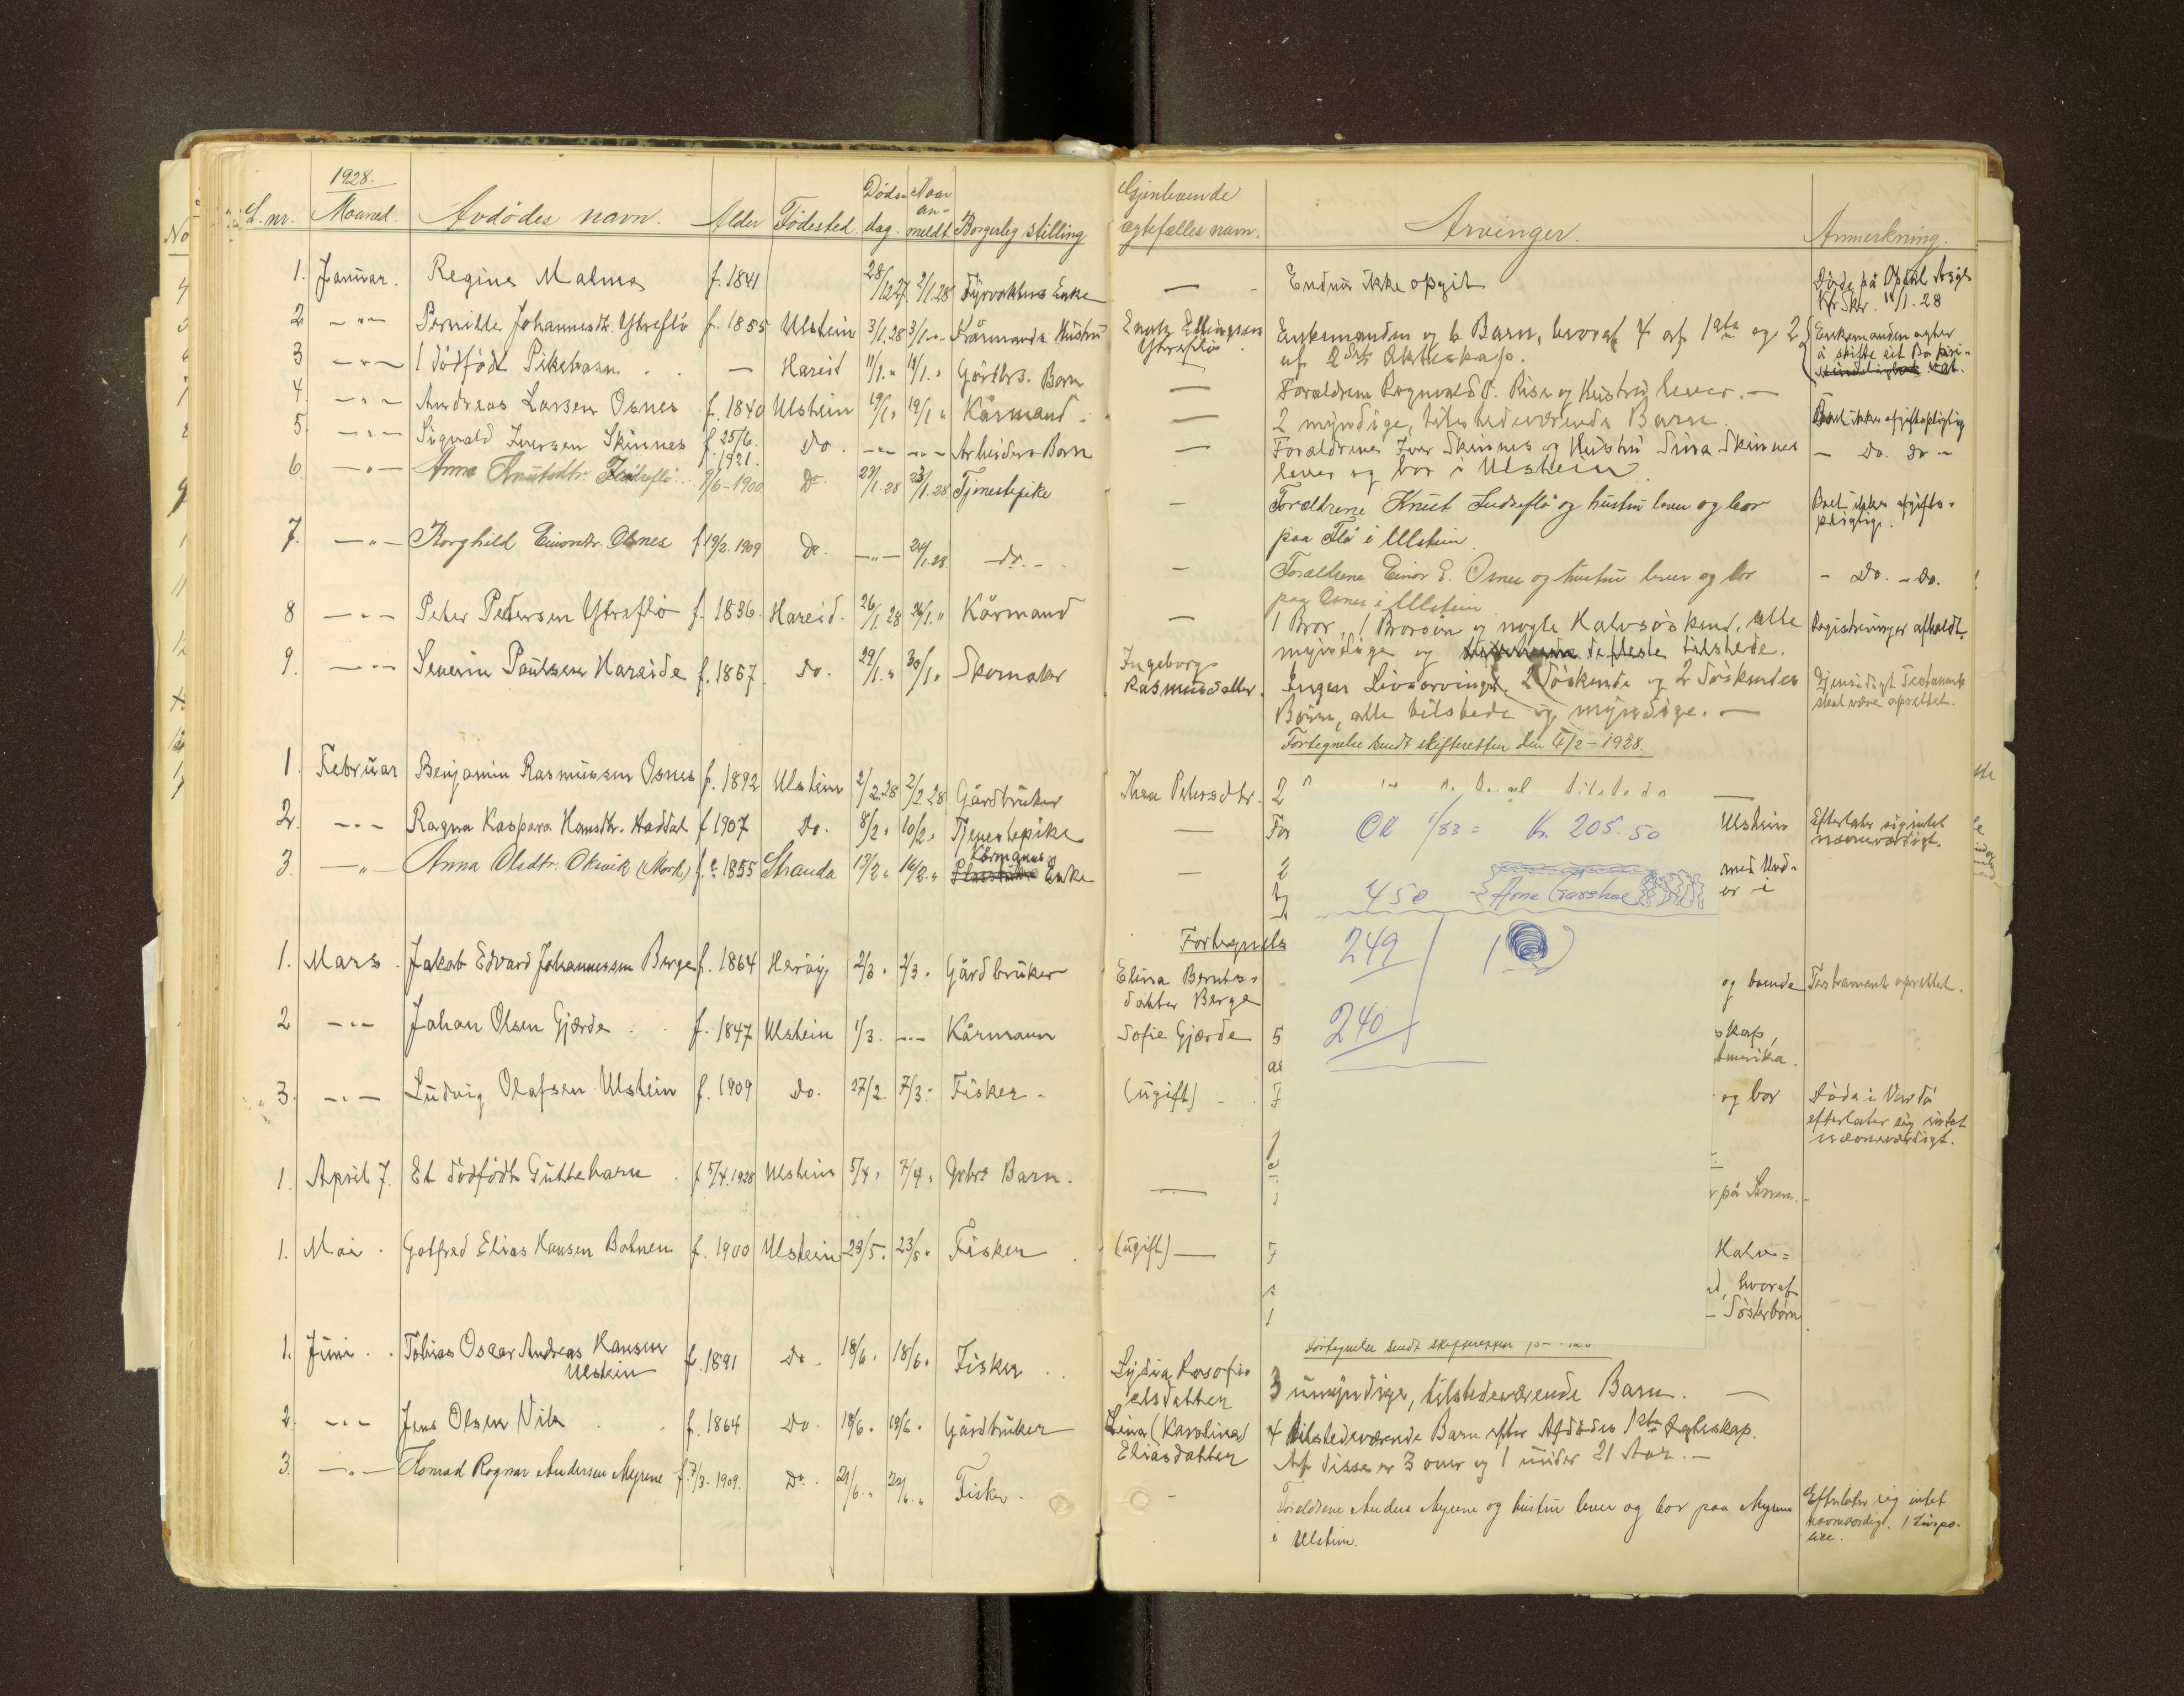 1928.
L. nr. Maaned. Avdödes navn. Alder Födested. Dödsdag. Naar anmeldt. Borgerlig stilling Gjenlevende ægtefælles navn. Arvinger. Anmerkning.
1. Januar. Regine Malmo f. 1841 28/12 27. 2/1.28 Fyrvokters Enke — Endnu ikke opgit Döde på Opdöl Asyl
Kfr. Skr. 14/1.28
2 —"— Pernille Johannesdtr. Ytreflö f. 1855 Ulstein 3/1.28 3/1.-"- Kårmands Hustru Enok Ellingsen Ytreflö Enkemanden og 6 Barn, hvoraf 4 af 1ste og 2
af 2det Ekteskap.
Enkemanden agter
å skifte sit Bo pri-
vat.
3 —"— 1 dödfödt Pikebarn — Hareid 11/1." 14/1." Gårdbrs. Barn — Forældrene Ragnvald P. Rise og Hustru lever. —
4. —"— Andreas Larsen Osnes f. 1840 Ulstein 19/1" 19/1" Kårmand — 2 myndige, tilstedeværende Barn. Boet ikke afgiftspligtig
5. —"— Sigvald Iversen Skinnes f. 25/6. 1921. do. —"— —"— Arbeiders Barn — Forældrene Iver Skinnes og Hustru Sina Skinnes
lever og bor i Ulstein
— do. do —
6. —"— Anna Knutsdtr. Indreflö 9/6-1900 Do. 23/1.28 23/1.28 Tjenestepike — Forældrene Knut Indreflö og hustru lever og bor
paa Flö i Ulstein
Boet ikke afgifts-
pligtige.
7. —"— Borghild Einarsdtr. Osnes f 19/2. 1909 Do. —"— 24/1.28. do. — — Forældrene Einar E. Osnes og hustru lever og bor
paa Osnes i Ulstein
— Do. — do.
8 —"— Peter Pedersen Ytreflö f. 1836. Hareid. 26/1.28 26/1." Kårmand — 1 Bror, 1 Brorsön og nogle Halvsösken, alle
myndige og de fleste tilstede.
Registreringer afholdt.
9. —"— Severin Paulsen Hareide f. 1857. do. 29/1." 30/1." Skomaker Ingeborg Rasmusdatter. Ingen Livsarvinger. 2 Söskende og 2 Söskendes
Börn, alle tilstede og myndige. —
Gjensidigt Testament
skal være oprettet.
Fortegnelse sendt skifteretten den 4/2-1928.
1. Februar Benjamin Rasmussen Osnes f. 1892 Ulstein 2/2.28 2/2 28 Gårdbruker Thea Petersdtr. 2
2. —"— Ragna Kaspara Hansdtr. Haddal f 1907 Do. 8/2" 10/2" Tjenestepike — For Ulstein Efterlater sig intet
nævneværdigt.
3. —"— Anna Olsdtr. Okvik (Mork) f. c 1855 Stranda 13/2" 16/2." Kårmanns Enke — 2 med Und-
er i
OK 1/83 = Kr. 205.50
450 Arne Garshol
249
240
Fortegnels
1. Mars. Jakob Edvard Johannessen Berge f. 1864 Heröy 2/3" 2/3" Gårdbruker Elina Berntsdatter Berge og boende Testramente oprettet.
2 —"— Johan Olsen Gjærde f. 1847 Ulstein 1/3. —"— Kårmann Sofie Gjærde 5 skap,
Amerika.
3. —"— Ludvig Olafsen Ulstein f. 1909 do. 27/2. 7/3." Fisker. (ugift) F og bor Döde i Vardö
efterlater sig intet
nævneværdigt.
1. April 7. Et dödfödt Guttebarn f 5/4.1928 Ulstein 5/4" 7/4" Gbrs Barn. — på Sunnm.
1. Mai. Gotfred Elias Hansen Botnen f. 1900 Ulstein 23/5. 23/5" Fisker (ugift) — F Halv=
hvoraf
— Sösterbörn
Fortegnelse sendt skifteretten
1. Juni. Tobias Oscar Andreas Hansen Ulstein f. 1891 Do. 18/6" 18/6" Fisker Lydia Rosofie elsdatter 3 umyndige, tilstedeværende Barn. —
2. —"— Jens Olsen Vik f. 1864 Do. 18/6. 19/6" Gårdbruker Lina (Karolina) Eliasdatter 4 tilstedeværende Barn efter Afdödes 1ste Ægteskap.
Af disse er 3 over og 1 under 21 Aar. —
3. —"— Konrad Ragnar Andersen Myrene f. 7/3-1909. Do. 21/6." 22/6." Fisker. — Forældrene Anders Myrene og hustru lever og bor paa Myrene
i Ulstein.
Efterlater sig intet
nævneværdigt. 1 Livspo-
lise.